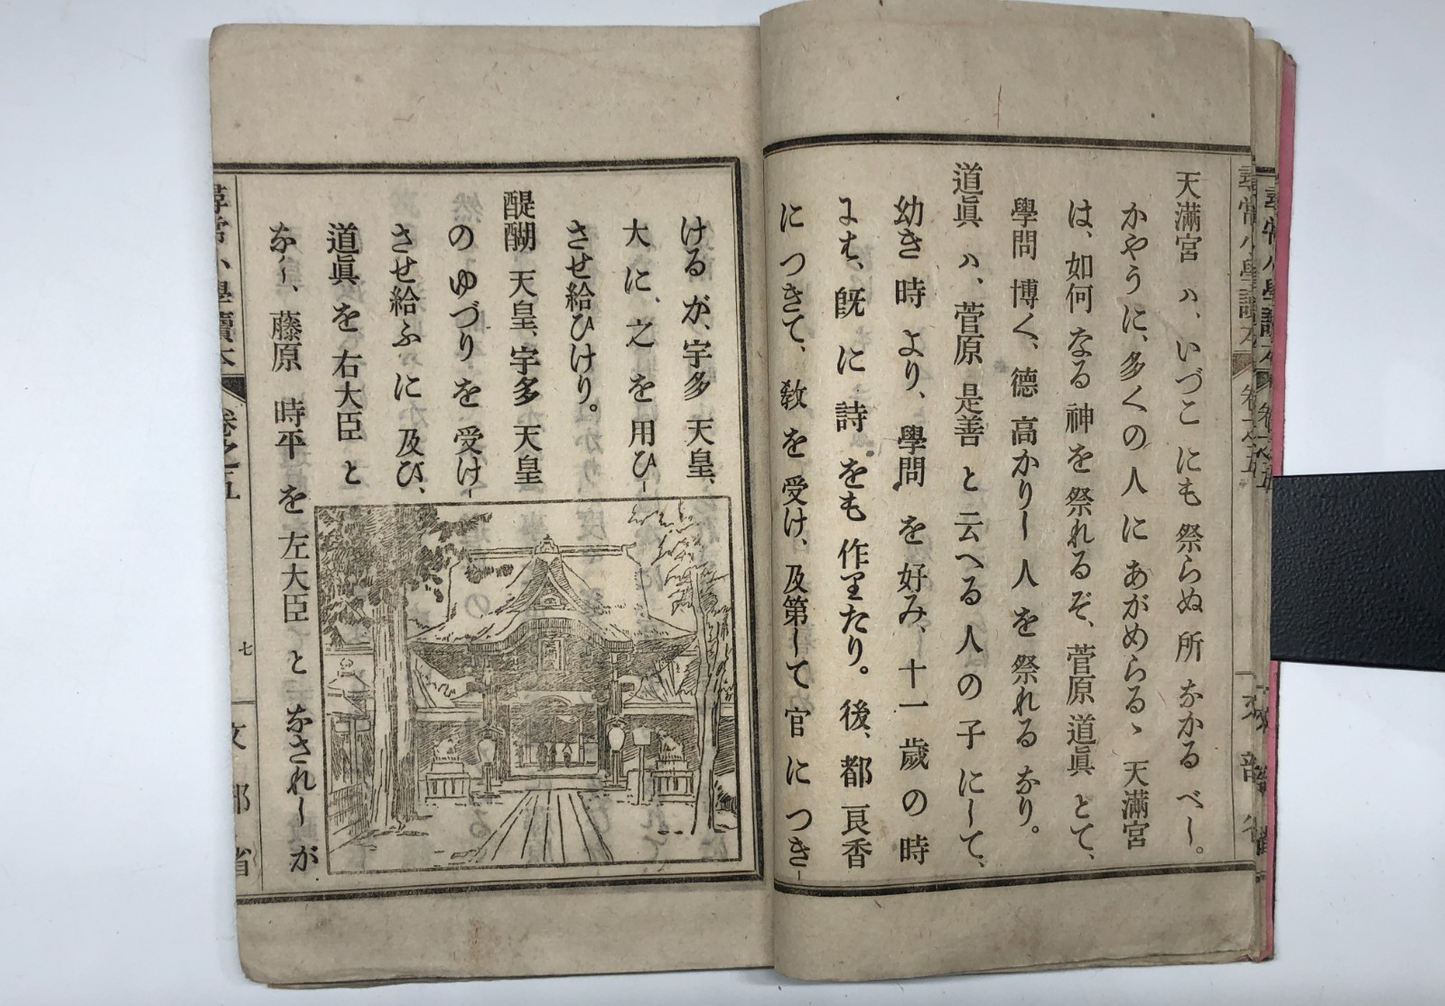 天滿宮 ハ、いづこ にも 祭らぬ 所 なかる べし。
かやう に、多くの 人 に あがめらるゝ 天滿宮
は、如何 なる 神 を 祭れる ぞ、菅原 道眞 とて、
學問 博く、德 高かりし 人 を 祭れる なり。
道眞 ハ、菅原 是善 と 云へる 人 の 子 にして、
幼き 時 より、學問 を 好み、十一 歲 の 時
にも、既 に 詩 をも 作りたり。後、都 良香
に つきて、敎 を 受け、及第して 官 に つき
ける が、宇多 天皇、
大 に、之 を 用ひ
させ給ひけり。
醍醐 天皇、宇多 天皇
の ゆづり を 受け
させ給ふ に 及び、
道眞 を 右大臣 と
なし、藤原 時平 を 左大臣 と なされし が
尋常小學讀本
卷之五
七
文部省